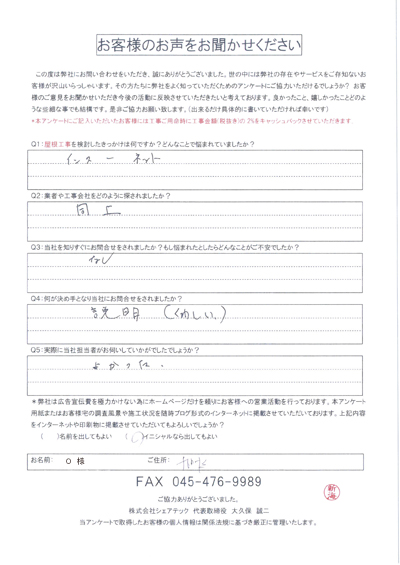 お客様のお声をお聞かせください
この度は弊社にお問い合わせをいただき、誠にありがとうございました。世の中には弊社の存在やサービスをご存知ないお
客様が沢山いらっしゃいます。その方たちに弊社をよく知っていただくためのアンケートにご協力いただけるでしょうか? お客
様のご意見をお聞かせいただき今後の活動に反映させていただきたいと考えております。良かったこと、嬉しかったことどのよ
うな些細な事でも結構です。是非ご協力お願い致します。(出来るだけ具体的に書いていただければ幸いです)
*本アンケートにご記入いただいたお客様には工事ご用命時に工事金額(税抜き)の2%をキャッシュバックさせていただきます
Q1:屋根工事を検討したきっかけは何ですか?どんなことで悩まれていましたか?
インターネット
Q2:業者や工事会社をどのように探されましたか?
同上
Q3:当社を知りすぐにお問合せをされましたか?もし悩まれたとしたらどんなことがご不安でしたか?
なし
Q4:何が決め手となり当社にお問合せをされましたか?
説明 (くわしい。)
Q5:実際に当社担当者がお伺いしていかがでしたでしょうか?
よかった。
*弊社は広告宣伝費を極力かけない為にホームページだけを頼りにお客様への営業活動を行っております。本アンケート
用紙またはお客様宅の調査風景や施工状況を随時ブログ形式のインターネットに掲載させていただいております。上記内容
をインターネットや印刷物に掲載させていただいてもよろしいでしょうか?
( )名前を出してもよい (○)イニシャルなら出してもよい
お名前: O 様 ご住所:
FAX 045-476-9989
ご協力ありがとうございました。
株式会社シェアテック 代表取締役 大久保 誠二
当アンケートで取得したお客様の個人情報は関係法規に基づき厳正に管理いたします。